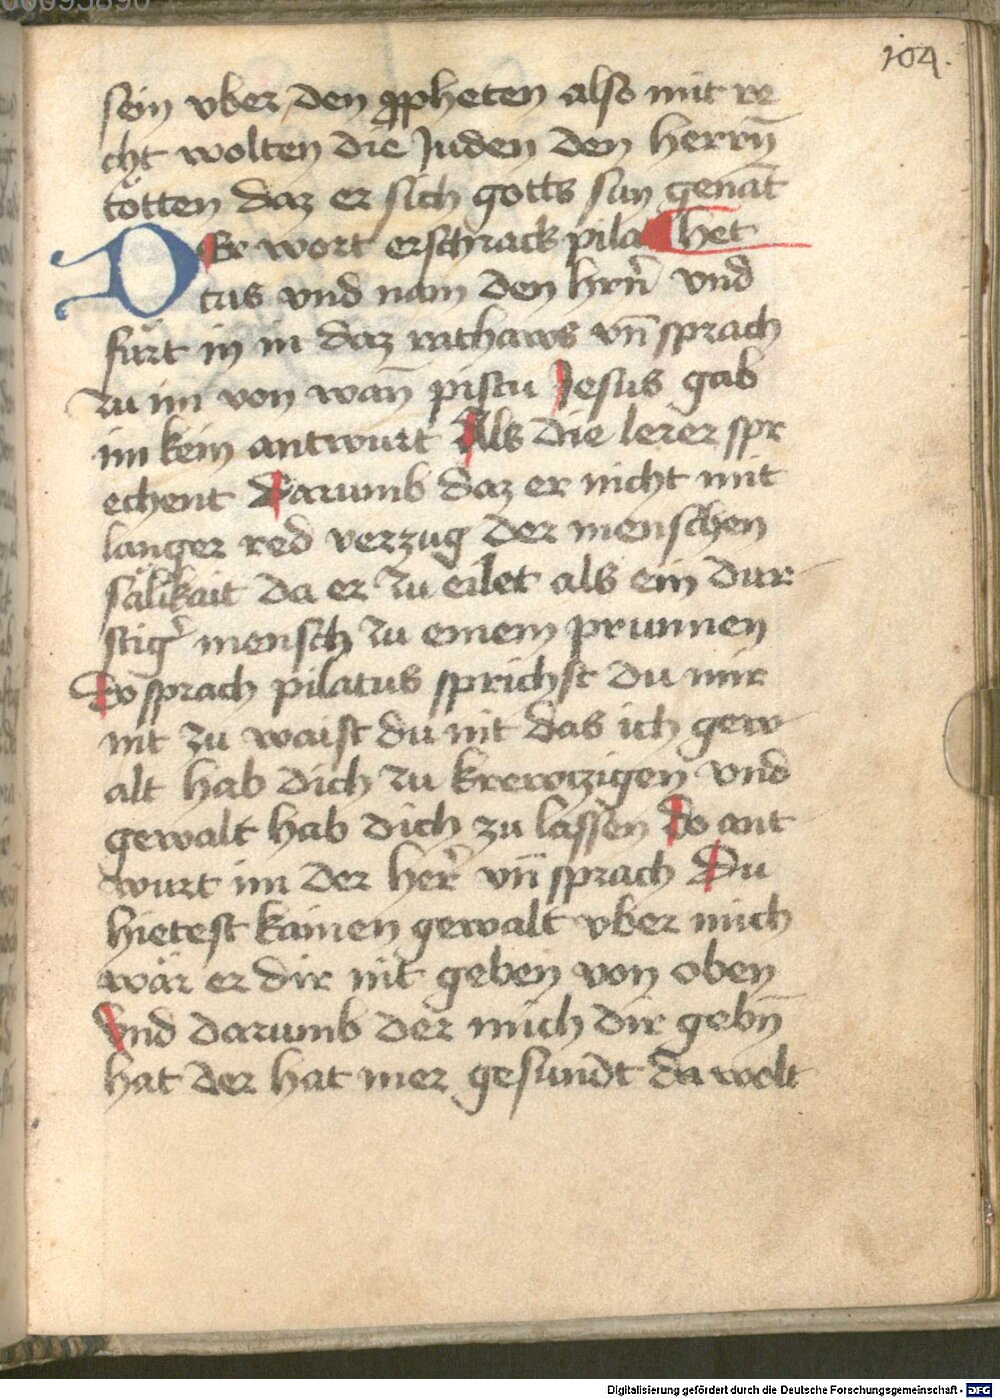 104.
sein vber den ꝓpheten also mit re
cht wolten die Juden den herrn̄
tötten daz er sich gotts sun genāt
Der wort erschrack pila het
tus vnd nam den hrn̄ vnd
fürt in in daz rathaws vn̄ sprach
zu im von wan̄ pistu Jesus gab
im kein antwurt Als die lerer spr
echent Darumb daz er nicht mit
langer red verzug der menschen
sälikait da er zu eilet als ein dur
stig̾ mensch zu einem prunnen
Do sprach pilatus sprichst du mir
nit zu waist du nit das ich gew
alt hab dich zu krewtzigen vnd
gewalt hab dich zu lassen Do ant
wurt im der her̾ vn̄ sprach Du
hietest kainen gewalt vber mich
wär er dir nit geben von oben
Vnd darumb der mich dir gebn̄
hat der hat mer gesundt da wolt
Digitalisierung gefördert durch die Deutsche Forschungsgemeinschaft - DFG